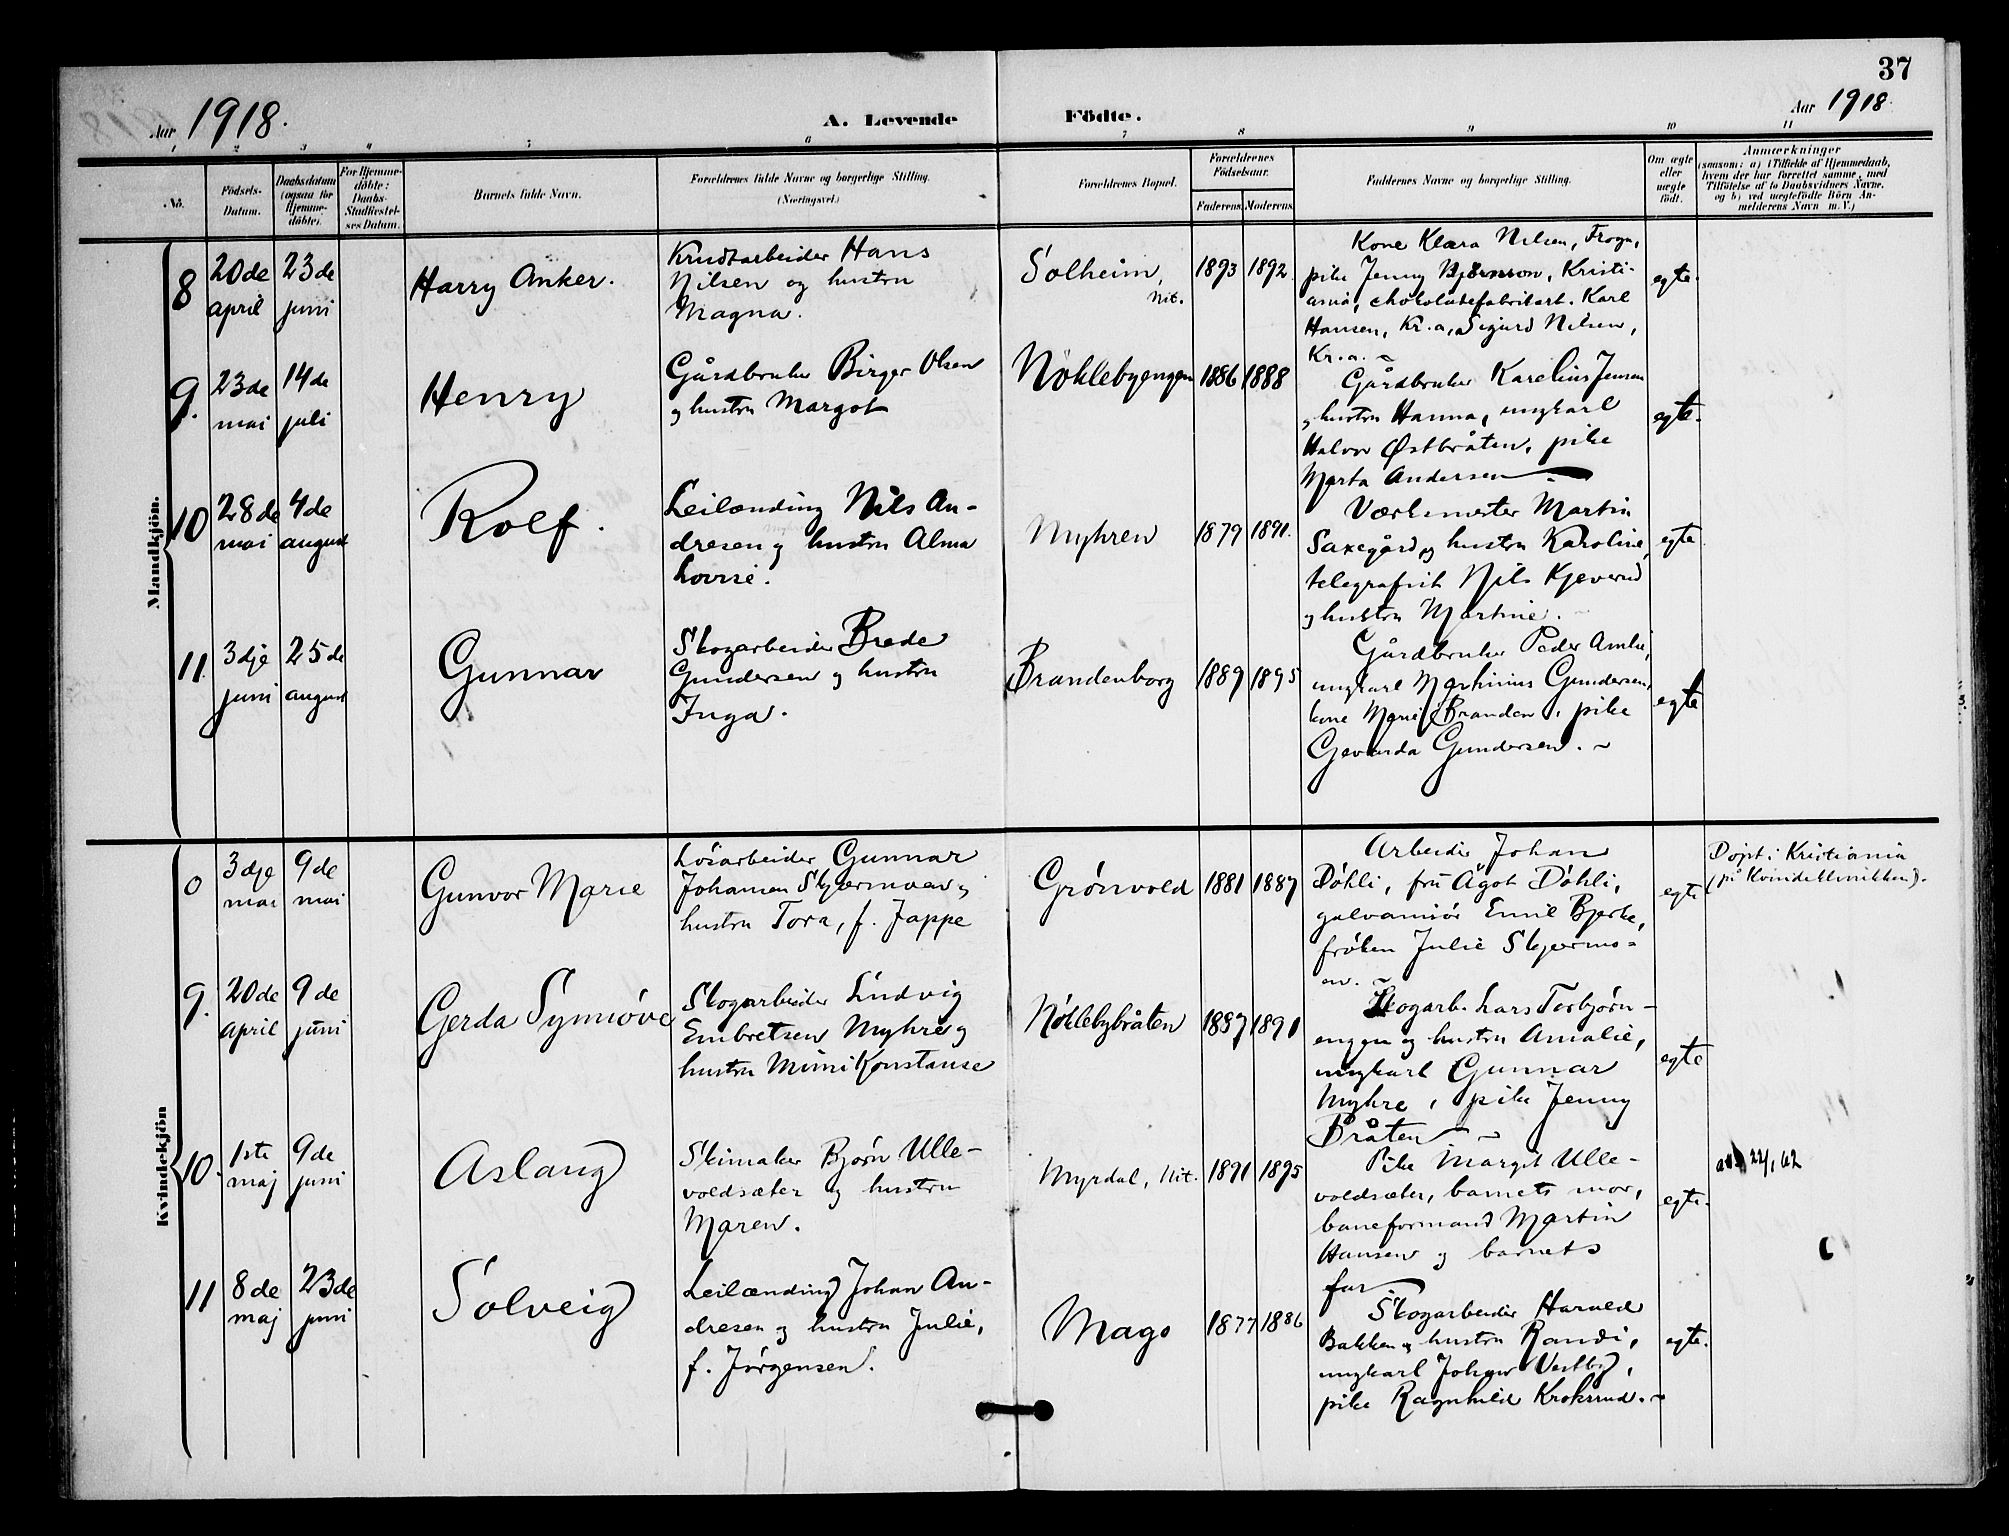 37
Aar 1918.
A. Levende Födte.
Aar 1918.
1 2 3 4 5 6 7 8 9 10 11
No.
Födsels-
Datum.
Daabsdatum
(ogsaa for
Hjemme-
döbte).
For Hjemme-
döbte:
Daabs-
Stadfæstel-
ses Datum.
Barnets fulde Navn.
Forældrenes fulde Navne og borgerlige Stilling.
(Næringsvei.)
Forældrenes Bopæl.
Forældrenes
Födselsaar.
Faderens. Moderens.
Faddernes Navne og borgerlige Stilling.
Om ægte
eller
uægte
födt.
Anmærkninger
(saasom: a) i Tilfælde af Hjemmedaab,
hvem der har forrettet samme, med
Tilföielse af to Daabsvidners Navne,
og b) ved uægtefödte Börn An-
melderens Navn m. V.)
Mandkjön.
8
20de
april
23de
juni
Harry Anker.
Krudtarbeider Hans
Nilsen og hustru
Magna.
Solheim,
Nit.
1893
1892.
Kone Klara Nilsen, Frogn,
pike Jenny Bjørnson, Kristi-
ania, chokoladefabrikarb. Karl
Hansen, Kr.a, Sigurd Nilsen,
Kr.a. ~
egte.
9.
23de
mai
14de
juli
Henry
Gårdbruker Birger Olsen
og hustru Margot
Nøklebyengen
1886
1888
Gårdbruker Karelius Jensen
og hustru Hanna, ungkarl
Halvor Østbråten, pike
Marta Andersen
egte.
10
28de
mai
4de
august
Rolf.
Leilænding Nils An-
dresen og hustru Alma
Lovise.
Myhren
1879
1891.
Værkmester Martin
Saxegård og hustru Karoline,
telegrafist Nils Kjeverud
og hustru Martine. ~
egte
11.
3dje
juni
25de
august
Gunnar
Skogarbeider Brede
Gundersen og hustru
Inga.
Brandenborg
1889
1895
Gårdbruker Peder Amlie,
ungkarl Martinius Gundersen,
kone Marie Branden, pike
Gevarda Gundersen. ~
egte
Kvindekjön
3dje
mai
9de
mai
Gunvor Marie
Løsarbeider Gunnar
Johansen Skjermoen og
hustru Tora, f. Jappe
Grönvold
1881
1887
Arbeider Johan
Døhli, fru Ågot Døhli,
galvanisör Emil Bjerke,
frøken Julie Skjermo-
en. ~
egte
Døpt i Kristiania
(på Kvindeklinikken).
9.
20de
april
9de
juni
Gerda Synnöve
Skogarbeider Ludvig
Embretsen Myhre og
hustru Mimi Konstanse
Nöklebybråten
1887
1891
Skogarb. Lars Torbjørn-
engen og hustru Amalie,
ungkarl Gunnar
Myhre, pike Jenny
Bråten ~
egte
10.
1ste
maj
9de
juni
Aslaug
Skimaker Bjørn Ulle-
voldsæter og hustru
Maren.
Myrdal, Nit.
1891
1895
Pike Margit Ulle-
voldsæter, barnets mor,
baneformand Martin
Hansen og barnets
far.
egte.
22/1, 62
11
8de
maj
23de
juni
Solveig
Leilænding Johan An-
dresen og hustru Julie,
f. Jørgensen.
Mago
1877
1886
Skogarbeider Harald
Bakken og hustru Randi,
ungkarl Johan Vestby,
pike Ragnhild Kroksrud. ~
egte.